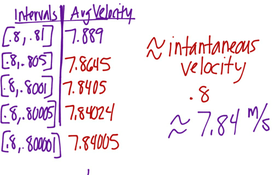 Intervals Avg Velocity
[.8, .81] 7.889
[.8, .805] 7.8645
[.8, .8001] 7.8405
[.8, .80005] 7.84024
[.8, .800001] 7.84005
≈ intantaneous
velocity
.8
≈ 7.84 m/s